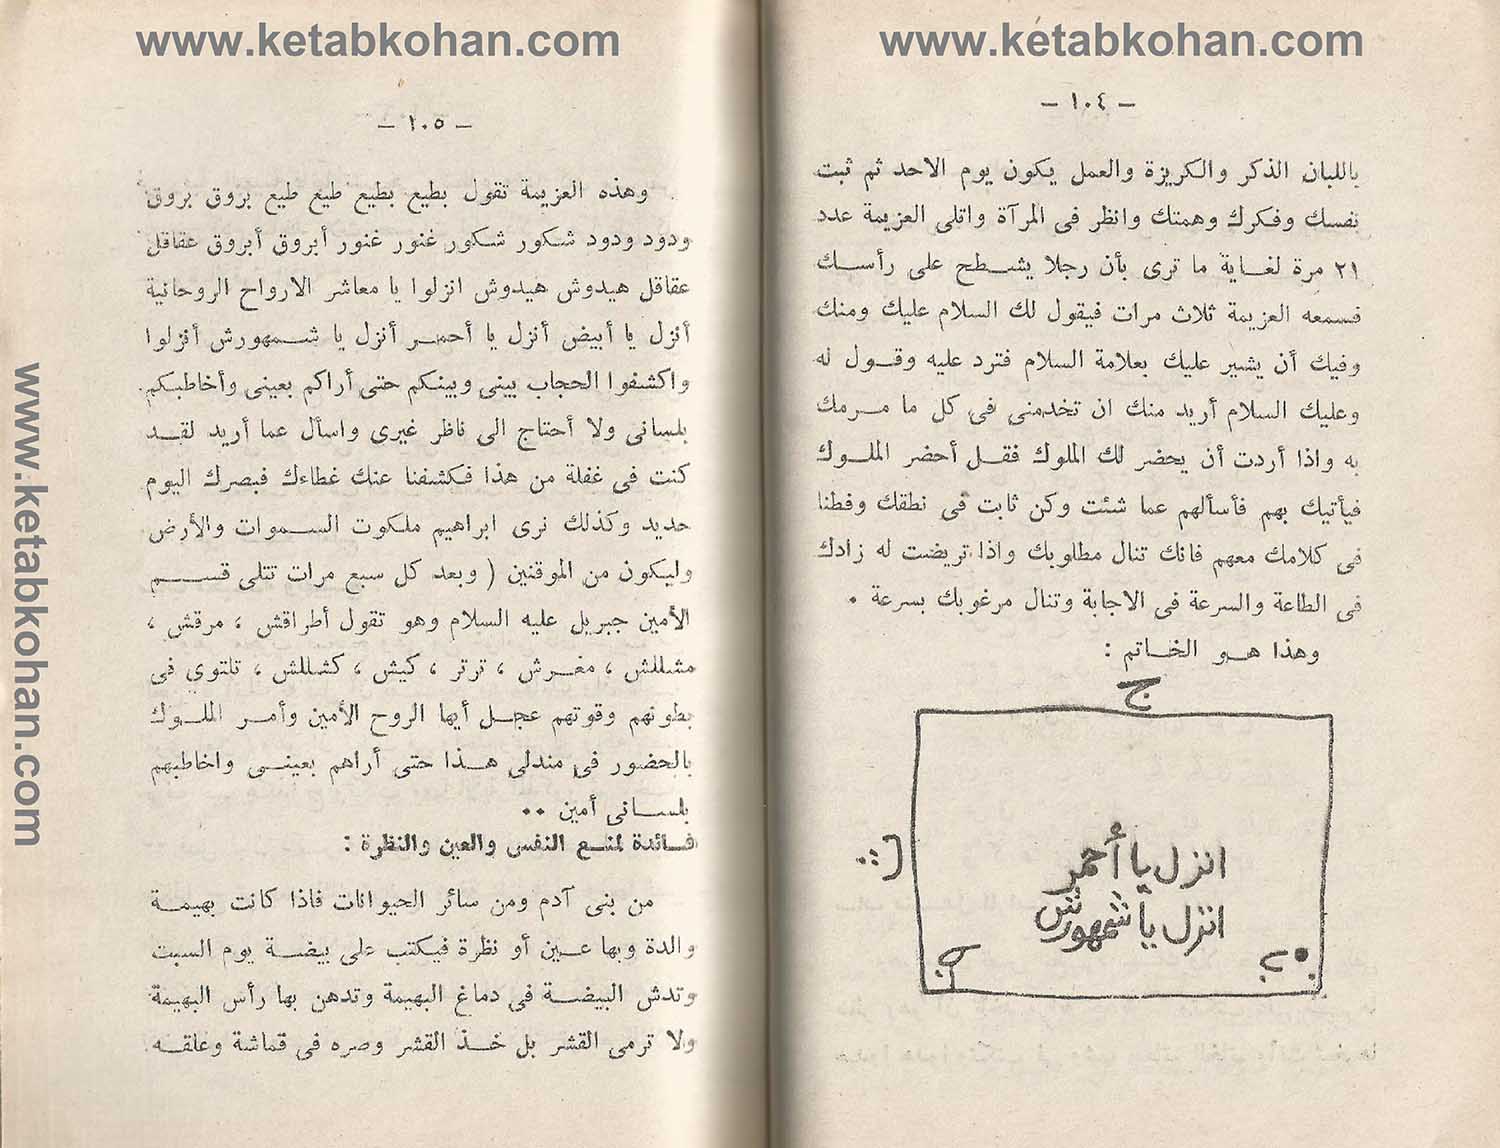 www.ketabkohan.com
www.ketabkohan.com
www.ketabkohan.com
- ١٠٤ -
باللبان الذكر والكريزة والعمل يكون يوم الاحد ثم ثبت
نفسك وفكرك وهمتك وانظر فى المرآة واتلى العزيمة عدد
٢١ مرة لغاية ما ترى بأن رجلا يشطح على رأسك
فسمعه العزيمة ثلاث مرات فيقول لك السلام عليك ومنك
وفيك أن يشير عليك بعلامة السلام فترد عليه وقول له
وعليك السلام أريد منك ان تخدمنى فى كل ما مرمك
به واذا أردت أن يحضر لك الملوك فقل أحضر الملوك
فيأتيك بهم فأسألهم عما شئت وكن ثابت فى نطقك وفطنا
فى كلامك معهم فانك تنال مطلوبك واذا تريضت له زادك
فى الطاعة والسرعة فى الاجابة وتنال مرغوبك بسرعة .
وهذا هو الخاتم :
ج
انزل يا أحمر
انزل يا شمهورش
- ١٠٥ -
وهذه العزيمة تقول بطيع بطيع طيع طيع بروق بروق
ودود ودود شكور شكور غنور غنور أبروق أبروق عقاقل
عقاقل هيدوش هيدوش انزلوا يا معاشر الارواح الروحانية
أنزل يا أبيض أنزل يا أحمر أنزل يا شمهورش أنزلوا
واكشفوا الحجاب بينى وبينكم حتى أراكم بعينى وأخاطبكم
بلسانى ولا أحتاج الى ناظر غيرى واسأل عما أريد لقد
كنت فى غفلة من هذا فكشفنا عنك غطاءك فبصرك اليوم
حديد وكذلك نرى ابراهيم ملكوت السموات والأرض
وليكون من الموقنين ( وبعد كل سبع مرات تتلى قسم
الأمين جبريل عليه السلام وهو تقول أطراقش ، مرقش ،
مشللش ، مغرش ، ترتر ، كيش ، كشللش ، تلتوى فى
بطونهم وقوتهم عجل أيها الروح الأمين وأمر الملوك
بالحضور فى مندلى هذا حتى أراهم بعينى واخاطبهم
بلسانى أمين ..
فائدة لمنع النفس والعين والنظرة :
من بنى آدم ومن سائر الحيوانات فاذا كانت بهيمة
والدة وبها عين أو نظرة فيكتب على بيضة يوم السبت
وتدش البيضة فى دماغ البهيمة وتدهن بها رأس البهيمة
ولا ترمى القشر بل خذ القشر وصره فى قماشة وعلقه